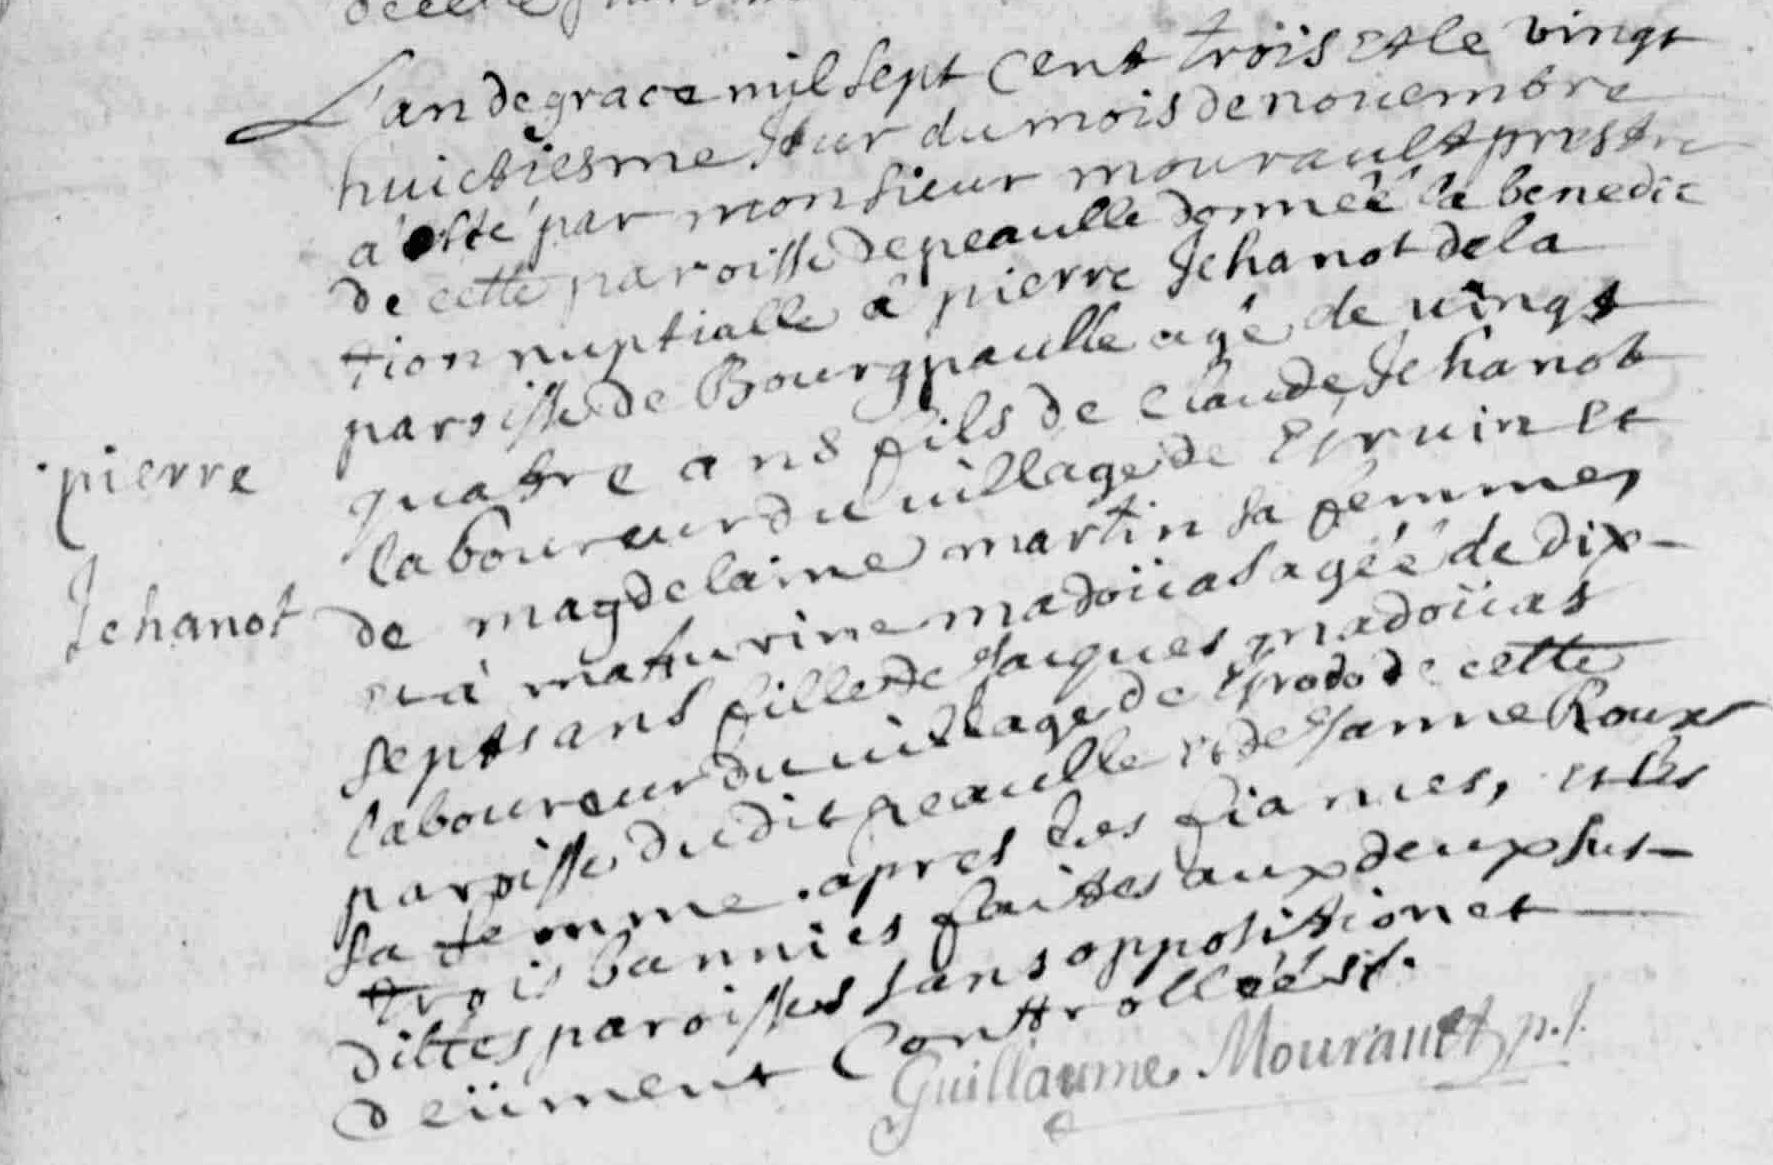 L'an de grace mil sept cent trois et le vingt
huictiesme Jour du mois de nouembre
a esté par monsieur mourault prestre
de cette paroisse de peaulle donnéé la benedic
tion nuptialle á pierre Jehanot de la
paroisse de Bourgpaulle agé de vingt
quatre ans fils de Claude Jehanot
laboureur du uillage de et
de magdelaine martin sa femme,
et á mathurine madoüas agéé de dix-
septs ans fille de Jaques madoüas
laboureur du uillage de de cette
paroisse dudit peaulle et de Janne Roux
sa femme. apres les fiances, et les
trois bannies faittes aux deux sus-
dittes paroisses sans oppositition et
deüment Conttrolléés /.
Guillaume Mourault p.J.
pierre
Jehanot